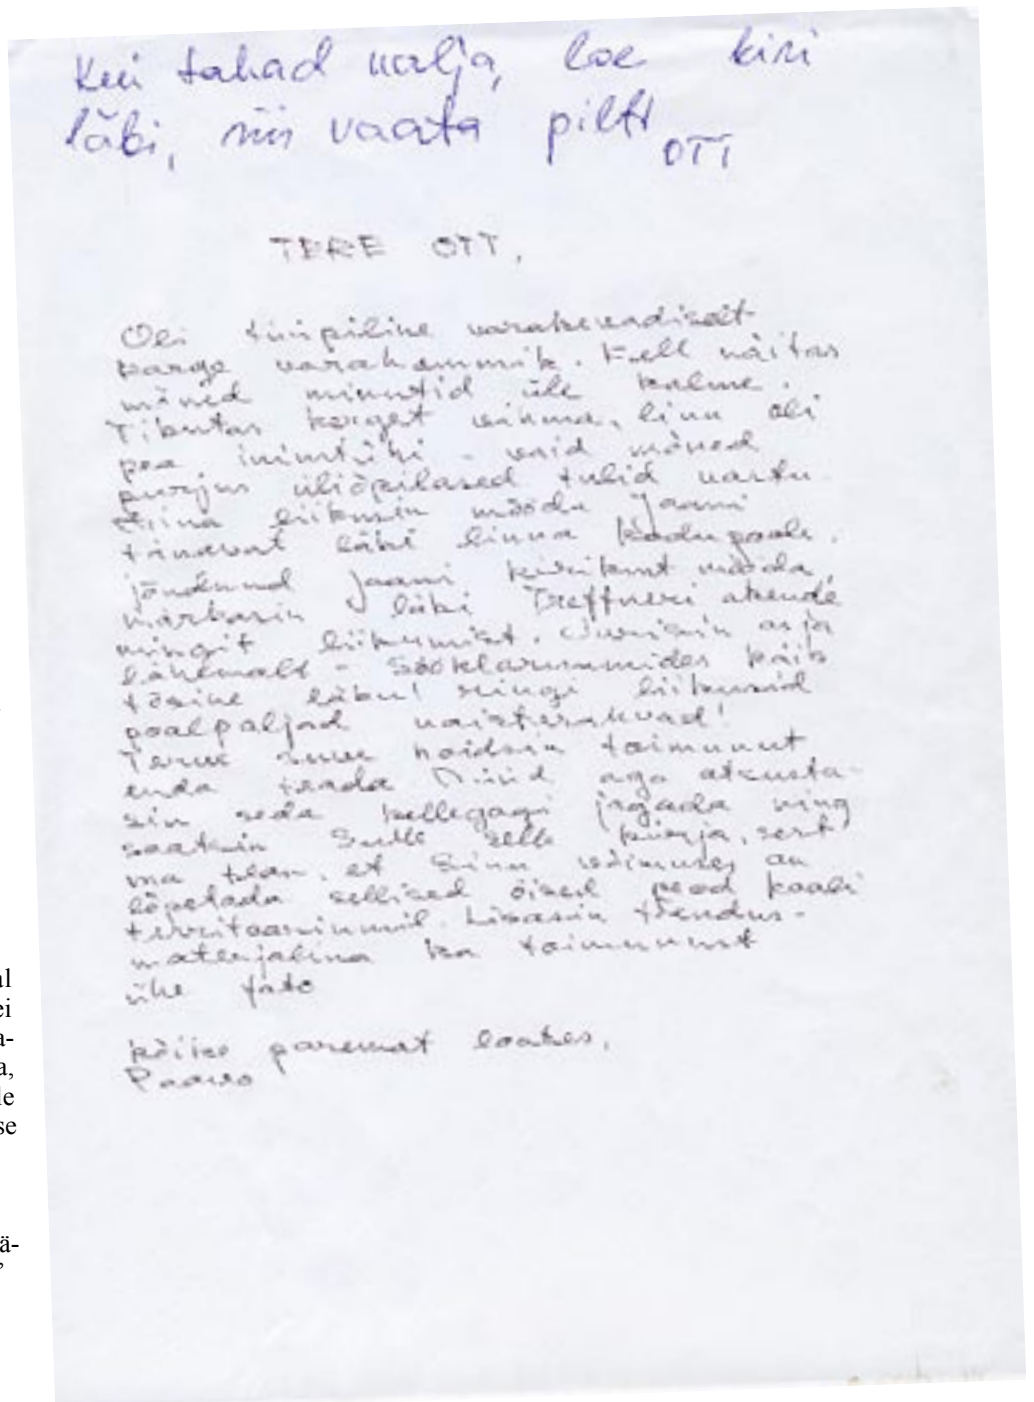 Kui tahad nalja, loe kiri
läbi, siis vaata pilti
OTT
TERE OTT,
Oli tüüpiline varakevadiselt
karge varahommik. Kell näitas
mõned minutid üle kolme.
Tibutas kerget vihma, linn oli
pea inimtühi - vaid mõned
purjus üliõpilased tulid vastu.
liikusin mööda Jaani
tänavat läbi linna kodu poole.
jõudnud Jaani kirikust mööda,
märkasin läbi Treffneri akende
mingit liikumist. Uurisin asja
lähemalt - Sööklaruumides käib
tõsine läbu! ringi liikusid
poolpaljad naisterahvad!
Terve suve hoidsin toimunut
enda teada Nüüd aga otsusta-
sin seda kellegagi jagada ning
saatsin Sulle selle kirja, sest
ma tean, et Sinu võimuses on
lõpetada sellised öised peod kooli
territooriumil. Lisasin tõendus-
materjalina ka toimunust
ühe foto
kõike paremat lootes,
Paavo
al
ei
a-
a,
le
se
ä-